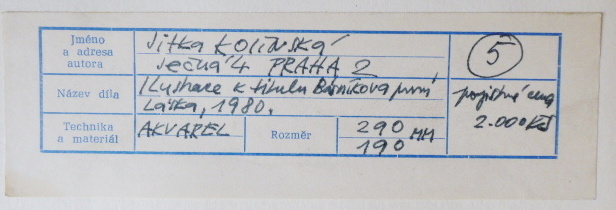 Jméno
a adresa
autora
Jitka KOLÍNSKÁ
Ječná 4 PRAHA 2
5
Název díla
Ilustrace k titulu Básníkova první
Láska, 1980.
pojistná cena
2.000 Kčs
Technika
a materiál
AKVAREL
Rozměr
290 MM
190